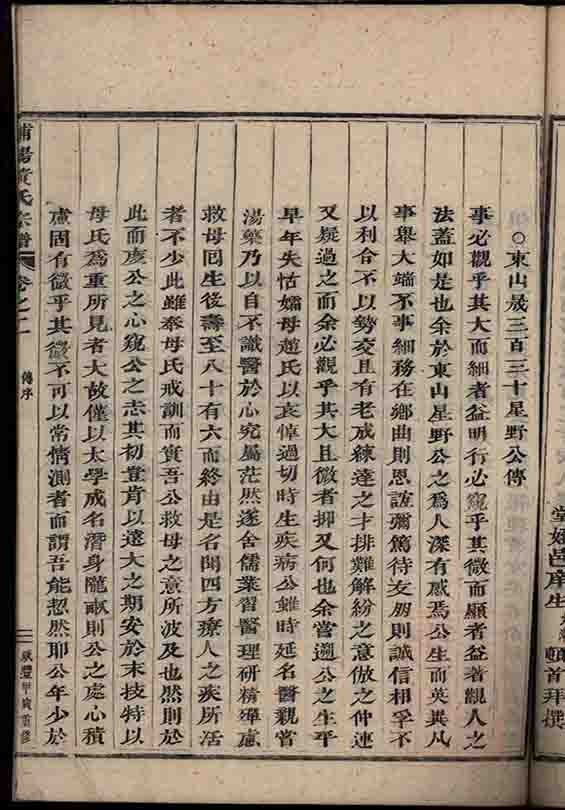 堂姪邑庠生
頓首拜撰
○東山晟三百三十星野公傳
事必觀乎其大而細者益明行必窺乎其微而顯者益著觀人之
法蓋如是也余於東山星野公之為人深有感焉公生而英異凡
事舉大端不事細務在鄉曲則恩誼彌篤待友朋則誠信相孚不
以利合不以勢交且有老成練達之才排難解紛之意倣之仲連
又疑過之而余必觀乎其大且微者抑又何也余嘗遡公之生平
早年失怙孀母趙氏以哀悼過切時生疾病公雖時延名醫親嘗
湯藥乃以自不識醫於心究屬茫然遂舍儒業習醫理研精殫慮
救母回生後壽至八十有六而終由是名聞四方療人之疾所活
者不少此雖奉母氏戒訓而實吾公救母之意所波及也然則於
此而處公之心窺公之志其初豈肯以遠大之期安於末技特以
母氏為重所見者大故僅以太學成名潛身隴畝則公之處心積
慮固有微乎其微不可以常情測者而謂吾能恝然耶公年少於
浦陽黃氏宗譜
卷之二
傳序
咸豐甲寅重修